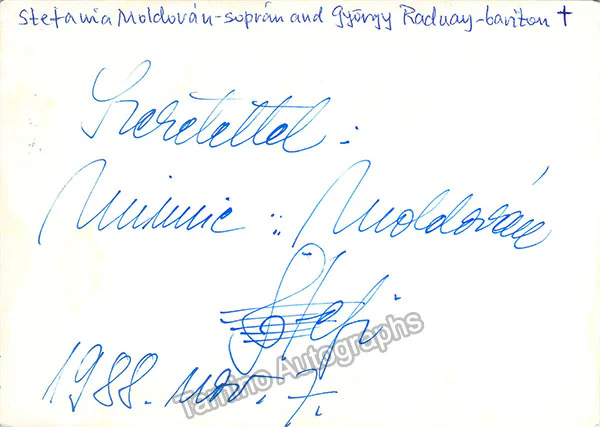 Stefania Moldován-soprán and György Radnay-bariton †
Szeretettel:
Mimie :: Moldován
Stefi
1988. nov. 7.
Tamino Autographs